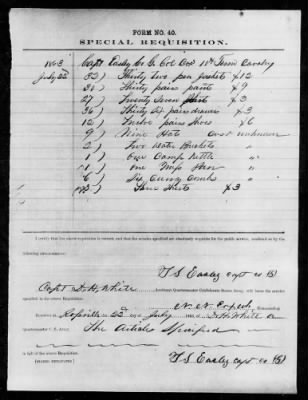 FORM NO. 40.
SPECIAL REQUISITION.
1863 Capt Easley Co G Col Cox 10th Tenn Cavalry
July 22 32) Thirty two pea Jackets $12
30) Thirty pairs pants $9
27) Twenty Seven Shirts $3
36) Thirty Six pair drawers $3
12) Twelve pairs Shoes $6
9) Nine Hats Cost unknown
2) Two Water Buckets "
1) One Camp Kettle "
1) one Mess Pan "
6) Six Curry Combs "
Shirts $3
I certify that the above requisition is correct; and that the articles specified are absolutely requisite for the public service, rendered so by the
T S Easley capt co G
Capt D. H. White Assistant Quartermaster Confederate States Army, will issue the articles
specified in the above Requisition.
Received at Rossville 22d of July 1863 of D H White
Quartermaster C. S. Army, The Articles Specified
in full of the above Requisition.
T S Easley capt co G